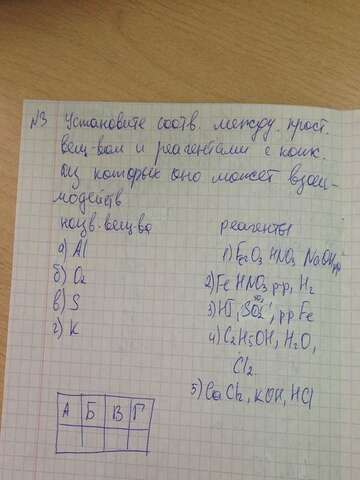 N3 Установите соотв. между прост.
вещ-вом и реагентами с кажд.
из которых оно может взаи-
модейств
назв. вещ-ва
реагенты
а) Al
1) Fe2O3 HNO3 NaOH р-р
б) O2
2) Fe HNO3 р-р, H2
в) S
3) HI, SO2, р-р Fe
г) K
4) C2H5OH, H2O,
Cl2
5) CaCl2, KOH, HCl
А Б В Г